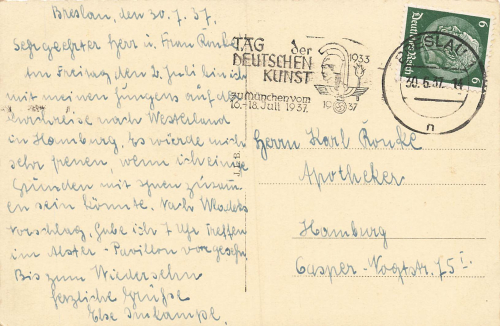 Breslau, den 30.7.37.
Sehr geehrter Herr u. Frau
Am Freitag den 2. Juli bin ich
mit meinen Jungens auf der
Durchreise nach Westerland
in Hamburg. Es würde mich
sehr freuen, wenn ich einige
Stunden mit Ihnen zusam
en sein könnte. Nach
vorschlag habe ich 7 Uhr Treffen
im Alster-Pavillon vorgesehn
Bis zum Wiedersehn
herzliche Grüße
Else
TAG der
DEUTSCHEN
KUNST
zu München vom
16.-18. Juli 1937.
1933
1937
BRESLAU
30.6.37
n
6
6
Deutsches Reich
Herrn Karl Ronke
Apotheker
Hamburg
Casper-Vogtstr. 75 I.